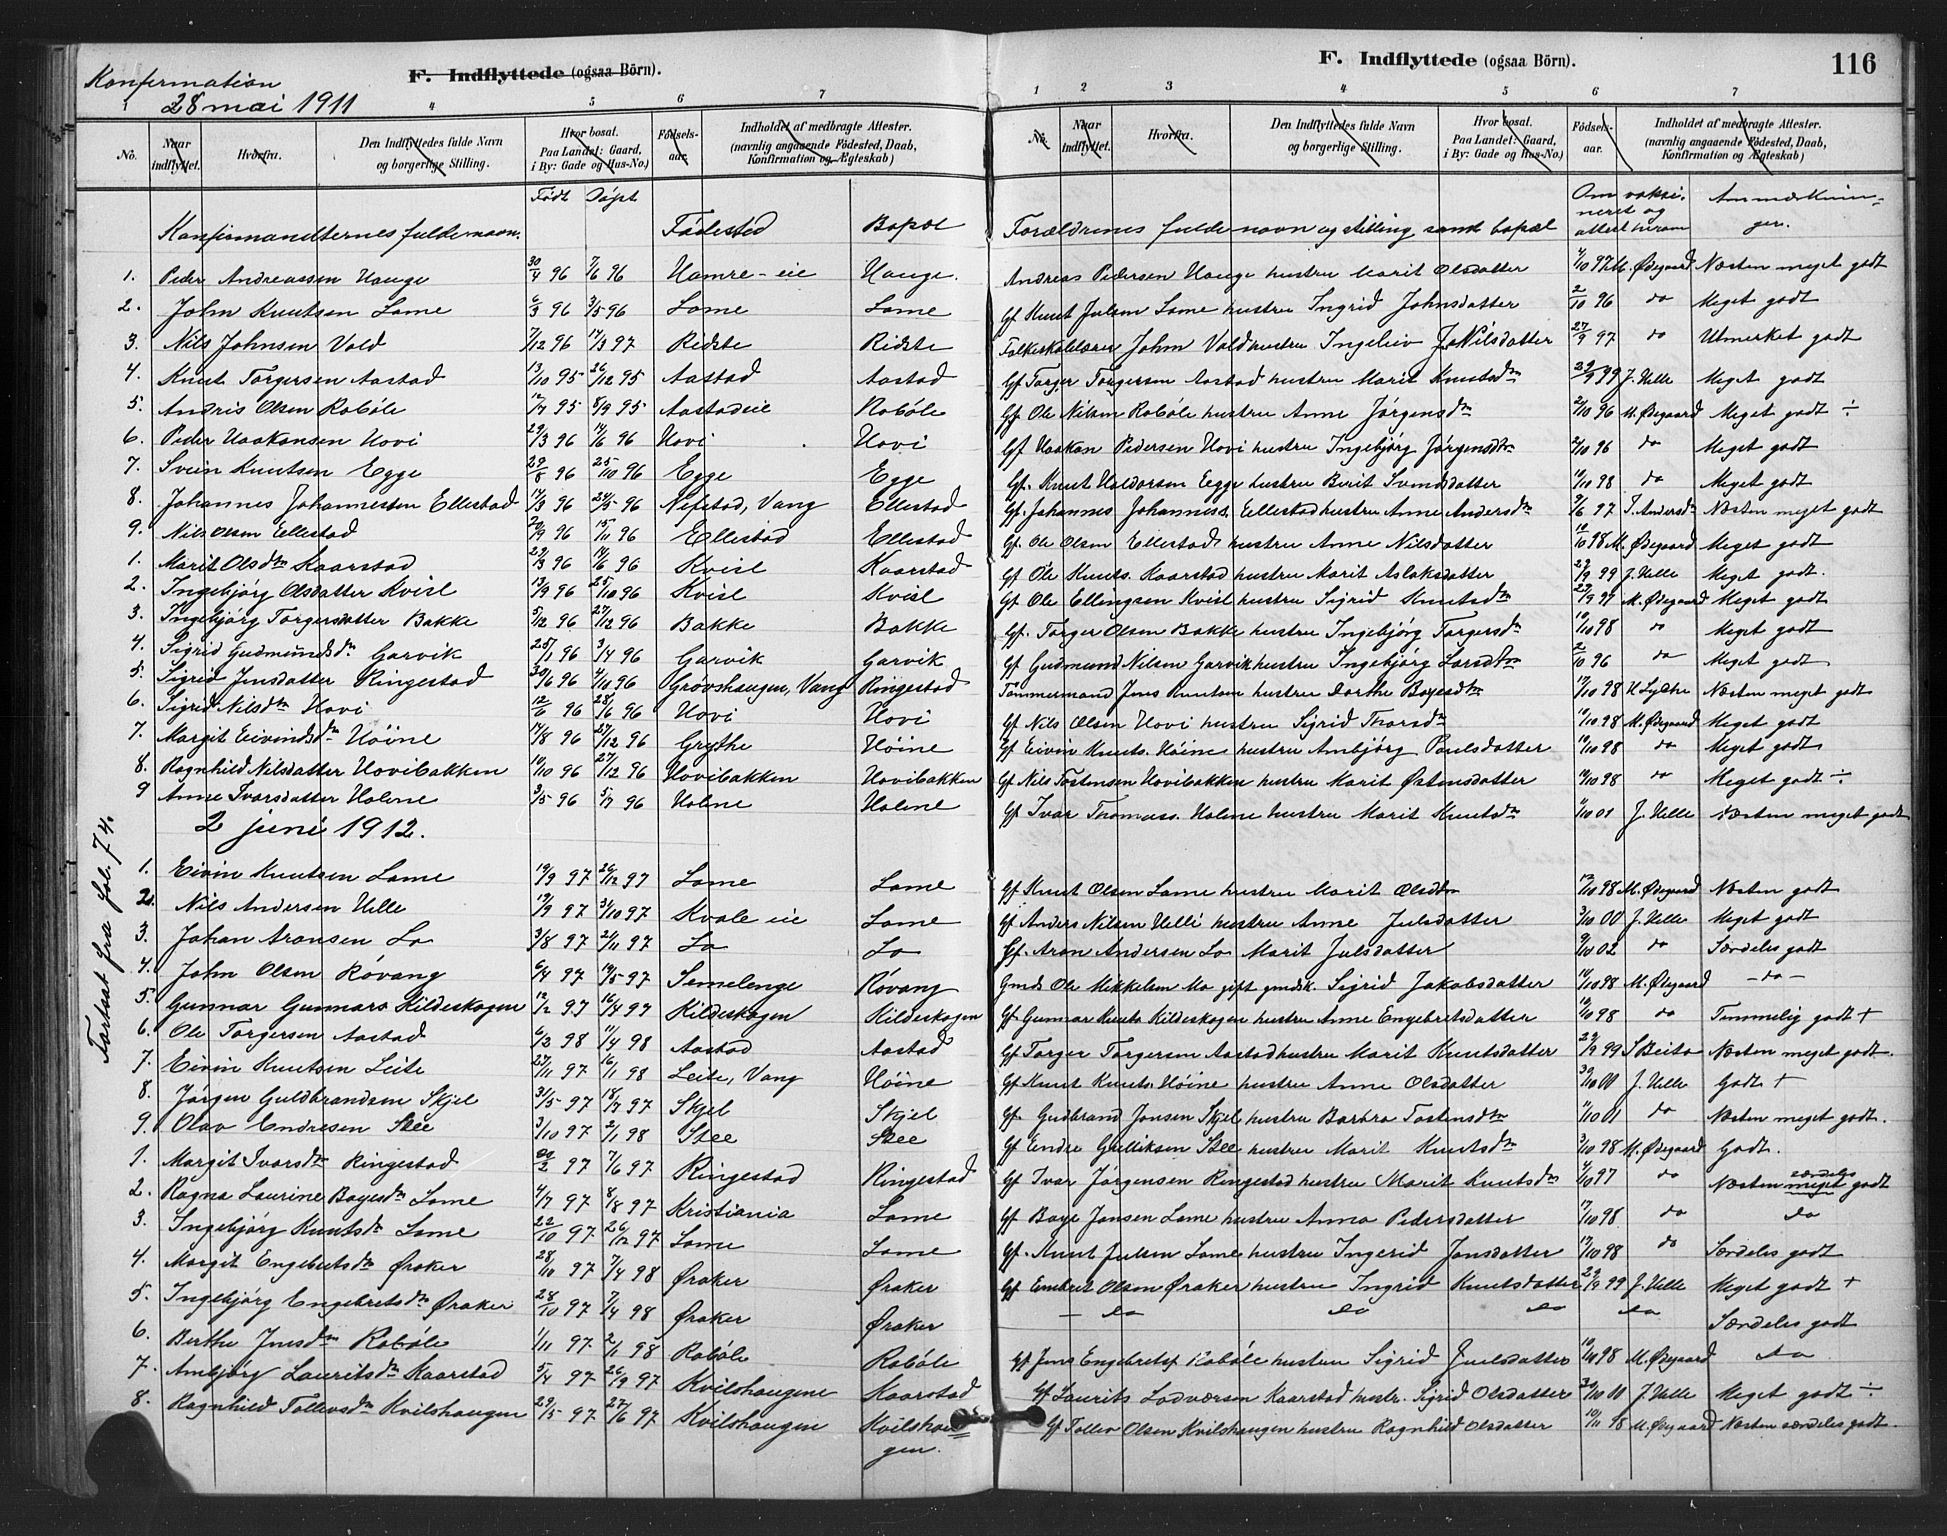 Konfirmation F. Indflyttede (ogsaa Börn). F. Indflyttede (ogsaa Börn). 116
28 mai 1911
4 5 6 7 1 2 3 4 5 6 7
No. Naar indflyttet. Hvorfra. Den Indflyttedes fulde Navn og borgerlige Stilling. Hvor bosat. Paa Landet: Gaard, i By: Gade og Hus-No.) Födsels-aar. Indholdet af medbragte Attester. (navnlig angaaende Födested, Daab, Konfirmation og Ægteskab)
No. Naar indflyttet. Hvorfra. Den Indflyttedes fulde Navn og borgerlige Stilling. Hvor bosat. Paa Landet: Gaard, i By: Gade og Hus-No.) Födsels-aar. Indholdet af medbragte Attester. (navnlig angaaende Födested, Daab, Konfirmation og Ægteskab)
Konfirmandternes fulde navn. Født Døpt Fødested Bopæl Forældrenes fulde navn og stilling samt bopæl Om vaksineret og attest herom Anmærkninger.
1. Peder Andreassen Hauge 30/4 96 7/6 96 Hamre-eie Hauge. Andreas Pedersen Hauge hustru Marit Olsdatter 4/10 97 M. Ødegaard Næsten meget godt
2. John Knutsen Lome 6/3 96 3/5 96 Lome Lome Gf Knut Julsen Lome hustru Ingrid Johnsdatter 2/10 96 do Meget godt
3. Nils Johnsen Vold 7/12 96 14/3 97 Ridste Ridste Folkeskolelærer John Vold hustru Ingeleiv J. Nilsdatter 27/9 97 do Utmerket godt
4. Knut Torgersen Aastad 13/10 95 26/12 95 Aastad Aastad Gf Torger Torgersen Aastad hustru Marit Knutsdtr 29/9 99 J. Helle Meget godt
5. Andris Olsen Robøle 12/7 95 8/9 95 Aastadeie Robøle Gf Ole Nilsen Robøle hustru Anne Jørgensdtr 2/10 96 M. Ødegaard Meget godt ÷
6. Peder Haakonsen Hovi 29/3 96 14/6 96 Hovi Hovi Gf Haakon Pedersen Hovi hustru Ingebjørg Jørgensdtr 2/10 96 do Meget godt
7. Svein Knutsen Egge 29/8 96 25/10 96 Egge Egge Gf. Knut Haldorsen Egge hustru Berit Svendsdatter 10/10 98 do Meget godt
8. Johannes Johannessen Ellestad 17/3 96 24/5 96 Nefstad, Vang Ellestad Gf. Johannes Johanness. Ellestad hustru Anne Andersdtr 9/6 97 T. Andersdn Næsten meget godt
9. Nils Olsen Ellestad 20/9 96 15/11 96 Ellestad Ellestad Gf. Ole Olsen Ellestad hustru Anne Nilsdatter 10/10 98 M. Ødegaard Meget godt
1. Marit Olsdtr Kaarstad 29/3 96 14/6 96 Kvisl Kaarstad Gf Ole Knuts. Kaarstad hustru Marit Aslaksdatter 29/9 99 J. Helle Meget godt.
2. Ingebjørg Olsdatter Kvisl 13/9 96 25/10 96 Kvisl Kvisl Gf Ole Ellingsen Kvisl hustru Sigrid Knutsdtr 27/9 97 M. Ødegaard Meget godt
3. Ingebjørg Torgersdatter Bakke 5/12 96 27/12 96 Bakke Bakke Gf. Torger Olsen Bakke hustru Ingebjørg Torgersdtr 10/10 98 do Meget godt
4. Sigrid Gudmundsdtr Garvik 25/1 96 3/4 96 Garvik Garvik Gf Gudmund Nilsen Garvik hustru Ingebjørg Larsdtr 2/10 96 do Meget godt
5. Sigrid Jensdatter Ringestad 30/6 96 4/10 96 Grøvshaugen, Vang Ringestad Tømmermand Jens Knutsen hustru Dorthe Boyesdtr 17/10 98 Næsten meget godt
6. Sigrid Nilsdtr Hovi 12/6 96 28/6 96 Hovi Hovi Gf Nils Olsen Hovi hustru Sigrid Thorsdtr 10/10 98 M. Ødegaard Meget godt
7. Margit Eivindsdtr Høine 17/8 96 27/12 96 Grythe Høine Gf Eivin Knuts. Høine hustru Ambjørg Paulsdatter 10/10 98 do Meget godt
8. Ragnhild Nilsdatter Hovibakken 10/10 96 27/12 96 Hovibakken Hovibakken Gf Nils Tostensen Hovibakken hustru Marit Østensdatter 10/10 98 do Meget godt ÷
9 Anne Ivarsdatter Holene 3/5 96 5/7 96 Holene Holene Gf Ivar Thomass. Holene hustru Marit Knutsdtr 1/10 01 J. Helle Næsten meget godt
2 juni 1912.
Fortsat fra fol. 74.
1. Eivin Knutsen Lome 19/9 97 26/12 97 Lome Lome Gf Knut Olsen Lome hustru Marit Olsdtr 12/10 98 M. Ødegaard Næsten godt
2. Nils Andersen Helle 17/9 97 31/10 97 Kvale-eie Lome Gf Anders Nilsen Helle hustru Anne Julsdatter 3/10 00 J. Helle Meget godt
3. Johan Aronsen Lo 3/8 97 21/11 97 Lo Lo Gf. Aron Andersen Lo Marit Julsdatter 9/10 02 do Særdeles godt
4. John Olsen Røvang 6/4 97 14/5 97 Semelenge Røvang Gmd Ole Mikkelsen Mo gift gmdsk. Sigrid Jakobsdatter 10/10 98 M. Ødegaard - do -
5. Gunnar Gunnars Kildeskogen 12/2 97 16/4 97 Kildeskogen Kildeskogen Gf. Gunnar Knuts Kildeskogen hustru Anne Engebretsdatter 10/10 98 do Temmelig godt +
6. Ole Torgersen Aastad 6/2 98 11/4 98 Aastad Aastad Gf Torger Torgersen Aastad hustru Marit Knutsdatter 29/9 99 S Beito Næsten meget godt.
7. Eivin Knutsen Leite 27/11 97 16/1 98 Leite, Vang Høine Gf Knut Knuts. Høine hustru Anne Olsdatter 30/10 00 J. Helle Godt +
8. Jørgen Guldbrandsen Skjel 31/5 97 18/7 97 Skjel Skjel Gf. Gudbrand Jonsen Skjel hustru Barbro Tostensdtr 1/10 01 do Næsten meget godt.
9. Olav Endresen Stee 3/10 97 2/1 98 Stee Stee Gf Endre Gulliksen Stee hustru Marit Knutsdtr 3/10 98 M. Ødegaard Godt.
1. Margit Ivarsdtr Ringestad 20/2 97 7/6 97 Ringestad Ringestad Gf Ivar Jørgensen Ringestad hustru Marit Knutsdtr 4/10 97 do Næsten meget særdeles godt
2. Ragna Laurine Boyesdtr Lome 4/7 97 8/8 97 Kristiania Lome Gf Boye Jonsen Lome hustru Anna Pedersdatter 17/10 98 do do
3. Ingebjørg Knutsdtr Lome 22/10 97 26/12 97 Lome Lome Gf. Knut Julsen Lome hustru Ingerid Jonsdatter 17/10 98 do Særdeles godt
4. Margit Engebretsdtr Øraker 28/10 97 7/4 98 Øraker Øraker Gf Embret Olson Øraker hustru Ingrid Knutsdatter 29/9 99 J. Helle Meget godt +
5. Ingebjørg Engebretsdtr Øraker 28/10 97 7/4 98 Øraker Øraker - do do do do Særdeles godt
6. Berthe Jensdtr Robøle 1/11 97 2/1 98 Robøle Robøle Gf Jens Engebrets Robøle hustru Sigrid Juulsdatter 10/10 98 M. Ødegaard do
7. Ambjørg Lauritsdtr Kaarstad 5/4 97 26/9 97 Kvilshaugene Kaarstad Gf Laurits Lodversen Kaarstad hustr. Sigrid Olsdatter 30/10 00 J. Helle Meget godt ÷
8. Ragnhild Tollevsdtr Kvilshaugen 29/5 97 27/6 97 Kvilshaugen Kvilshaugen. Gf Tollev Olsen Kvilshaugen hustru Ragnhild Olsdatter 10/11 98 M. Ødegaard Næsten særdeles godt.